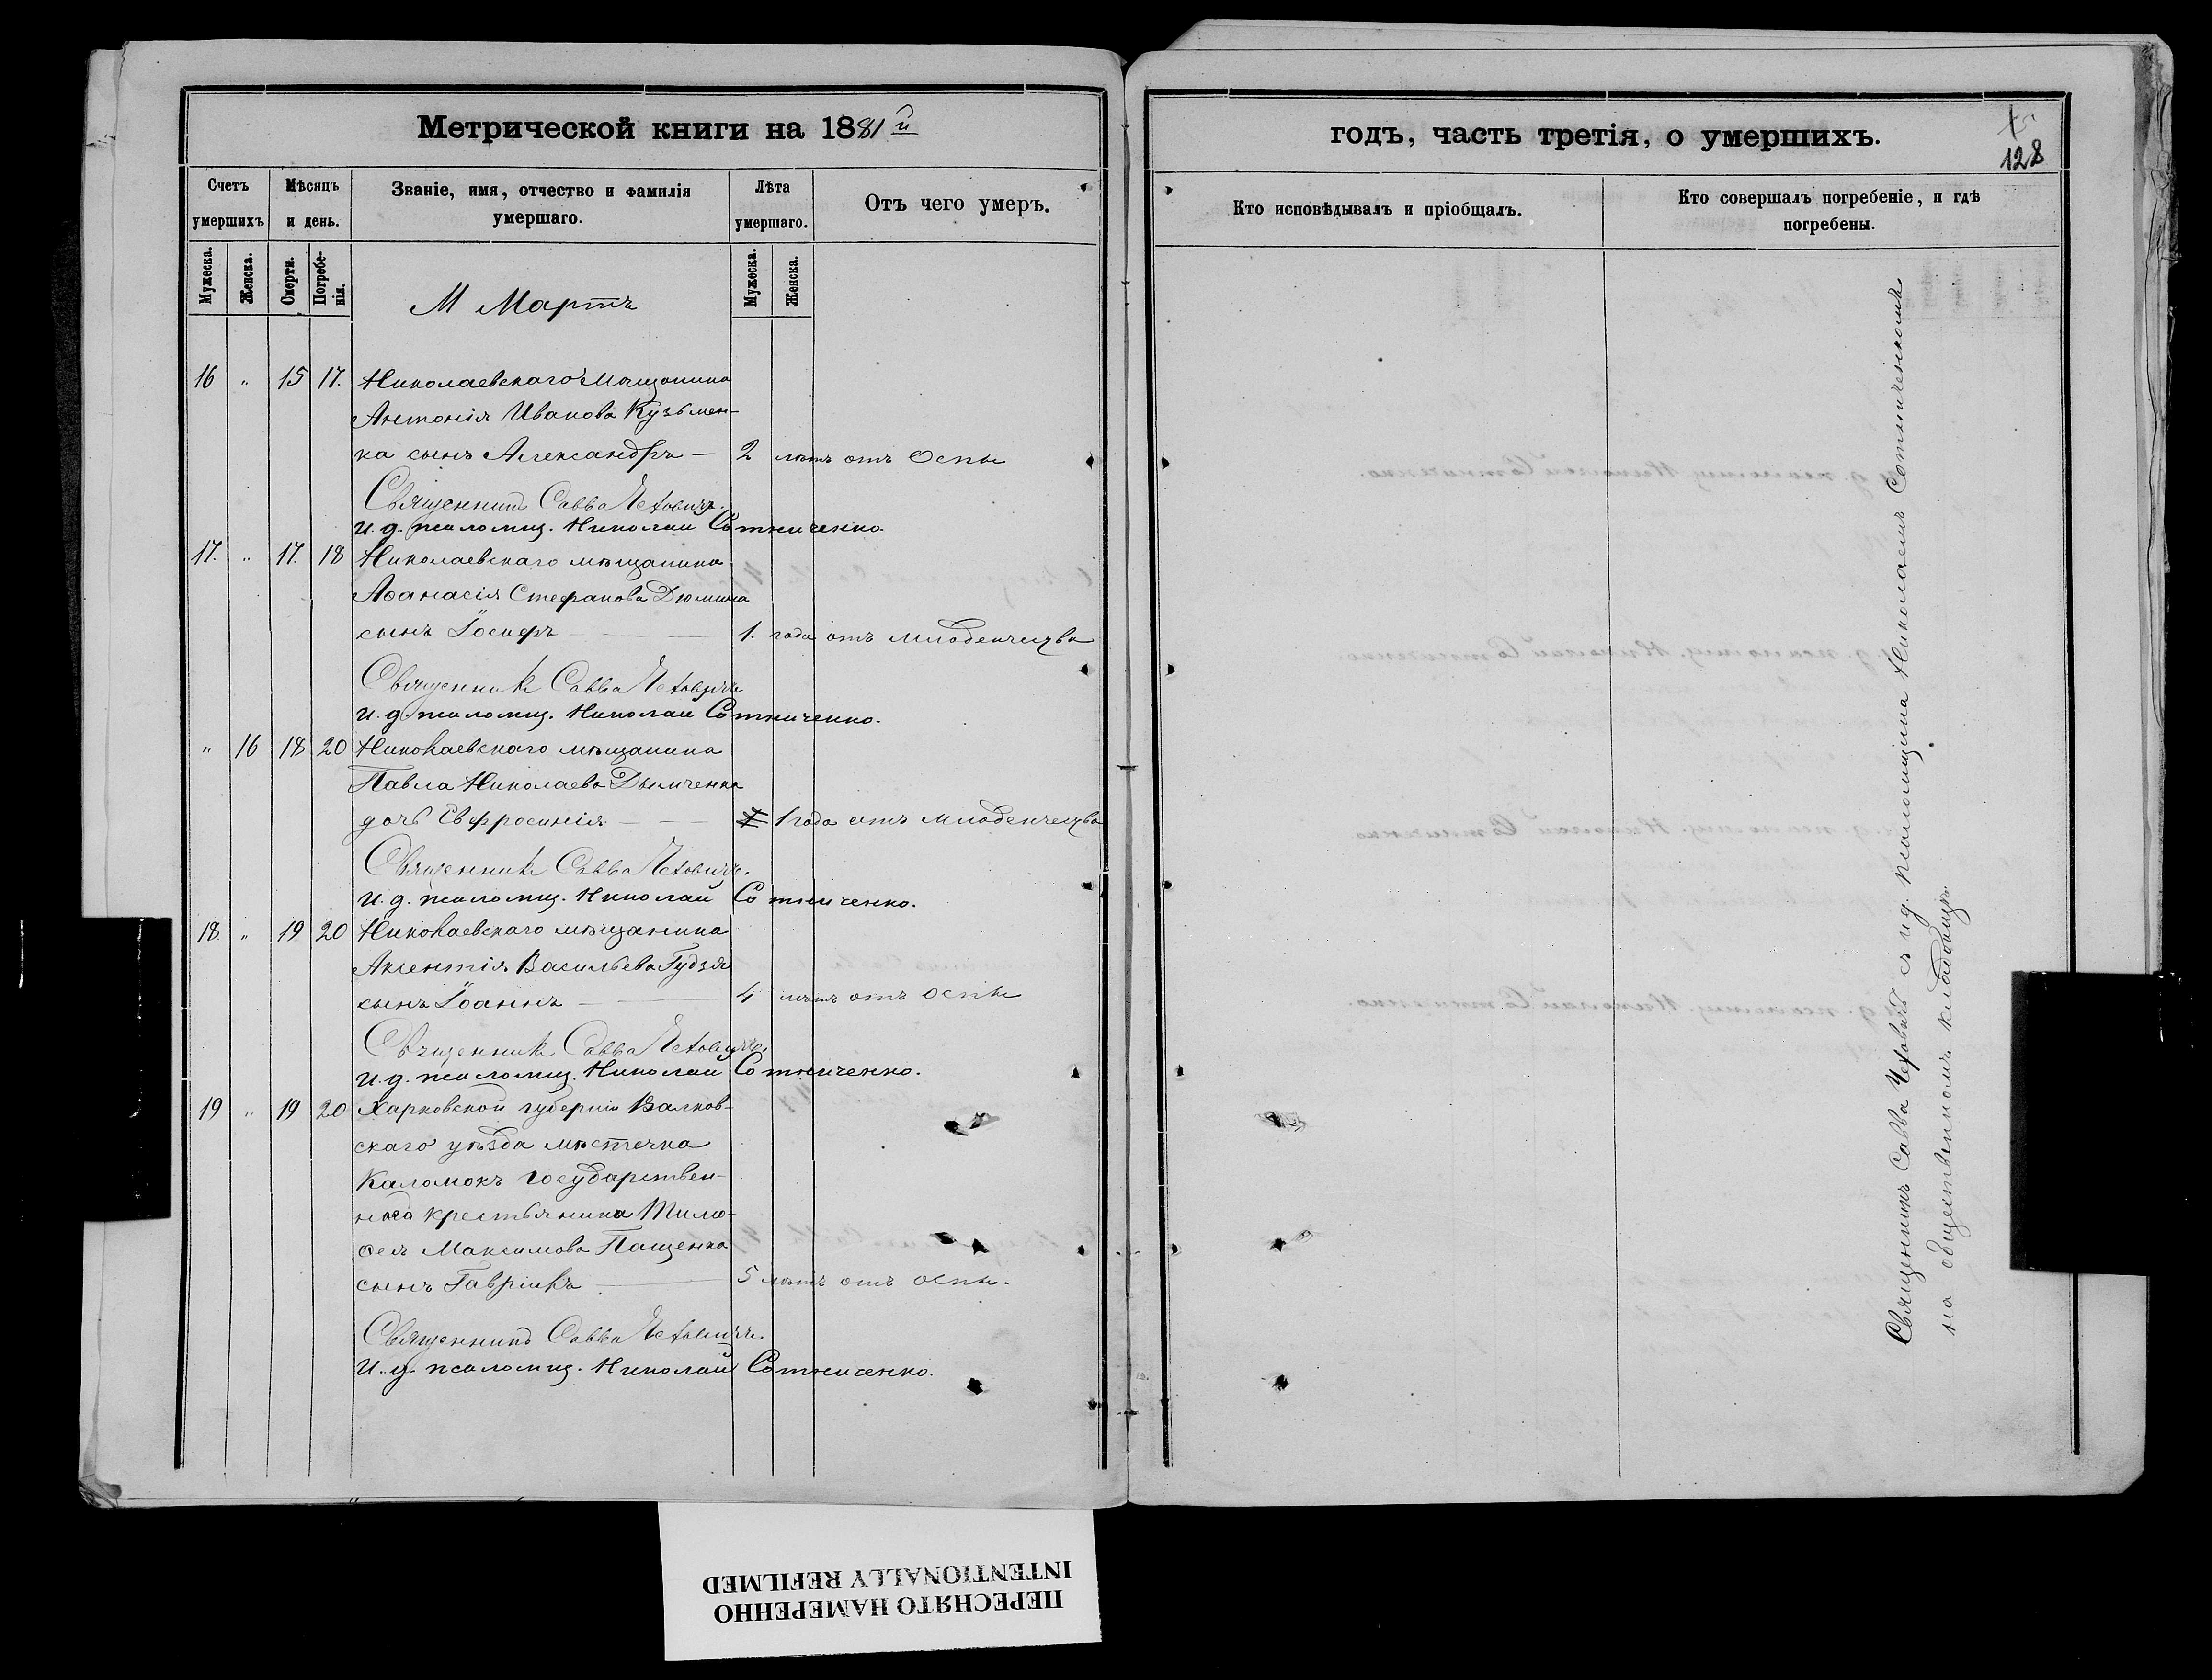 Метрической книги на 1881й
Счетъ умершихъ
Мѣсяцъ и день.
Званіе, имя, отчество и фамилія умершаго.
Лѣта умершаго.
Отъ чего умеръ.
Мужеска.
Женска.
Смерти.
Погребенія.
Мужеска.
Женска.
М Мартъ
16 " 15 17. Николаевскаго Мѣщанина
Антонія Иванова Кузьмен-
ка сынъ Александръ — 2 лѣтъ отъ Оспы
Священникъ Савва Чехович.
И. д. псаломщ. Николай Сотниченко.
17. " 17. 18 Николаевскаго мѣщанина
Аѳанасія Стефанова Дюмина
сынъ Іосифъ — 1. года отъ младенчества
Священникъ Савва Чеховичъ
И. д. псаломщ. Николай Сотниченко.
" 16 18 20 Николаевскаго мѣщанина
Павла Николаева Дымченка
дочь Евфросинія — 1 года отъ младенчества
Священникъ Савва Чеховичъ.
И. д. псаломщ. Николай Сотниченко.
18. " 19 20 Николаевскаго мѣщанина
Аксентія Васильева Гудзя
сынъ Іоаннъ — 4 лѣтъ отъ оспы
Священникъ Савва Чеховичъ.
И. д. псаломщ. Николай Сотниченко.
19 " 19 20 Харковской губерніи Валков-
скаго уѣзда мѣстечка
Каломокъ государствен-
наго крестьянина Тимо-
ѳея Максимова Пащенка
сынъ Гавріилъ — 5 лѣтъ отъ оспы.
Священникъ Савва Чеховичъ.
И. д. псаломщ. Николай Сотниченко.
годъ, часть третія, о умершихъ.
15
128
Кто исповѣдывалъ и пріобщалъ.
Кто совершалъ погребеніе, и гдѣ погребены.
Священникъ Савва Чеховичъ съ и. д. псаломщика Николаемъ Сотниченкомъ
на общественномъ кладбищѣ.
ПЕРЕСНЯТО НАМЕРЕННО
INTENTIONALLY REFILMED